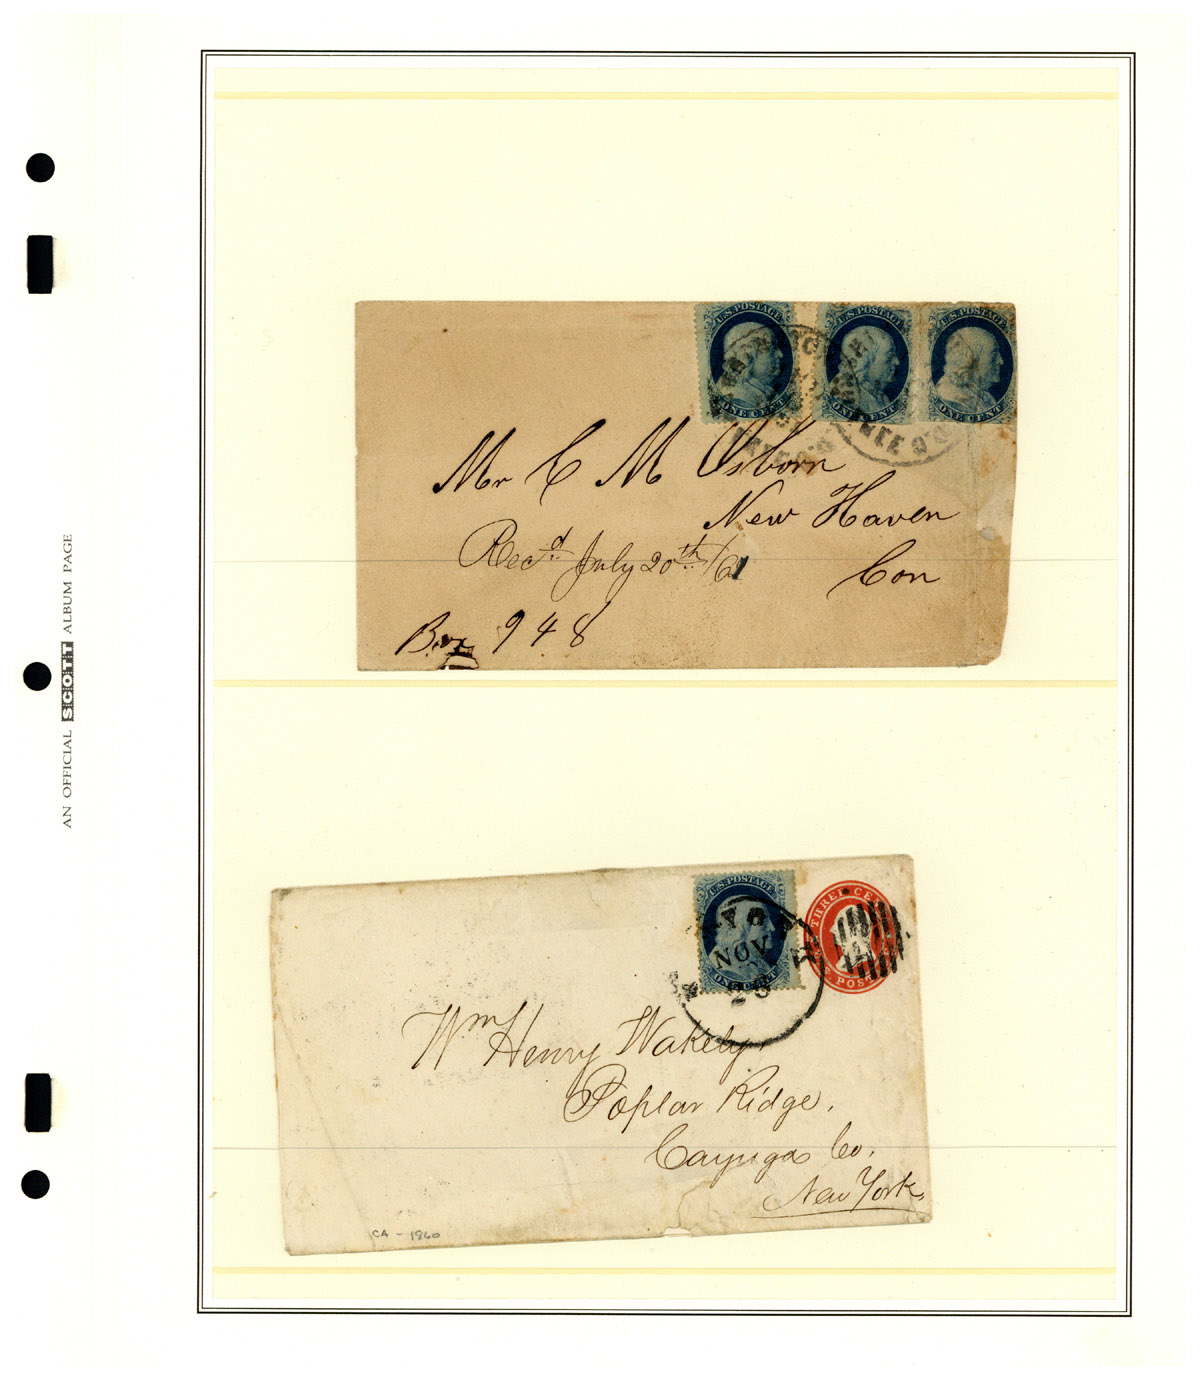 AN OFFICIAL SCOTT ALBUM PAGE
U.S. POSTAGE
ONE CENT
U.S. POSTAGE
ONE CENT
U.S. POSTAGE
ONE CENT
Mr C M Osborn
New Haven
Recd. July 20th /61
Con
Box 948
U.S. POSTAGE
ONE CENT
THREE CE
POS
NOV
Wm Henry Wakely.
Poplar Ridge.
Cayuga Co.
New York.
CA - 1860